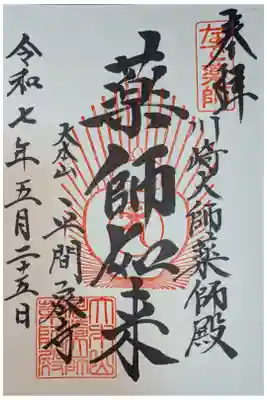 奉拝
川崎大師薬師殿
薬師如来
大本山 平間寺
令和七年五月二十五日